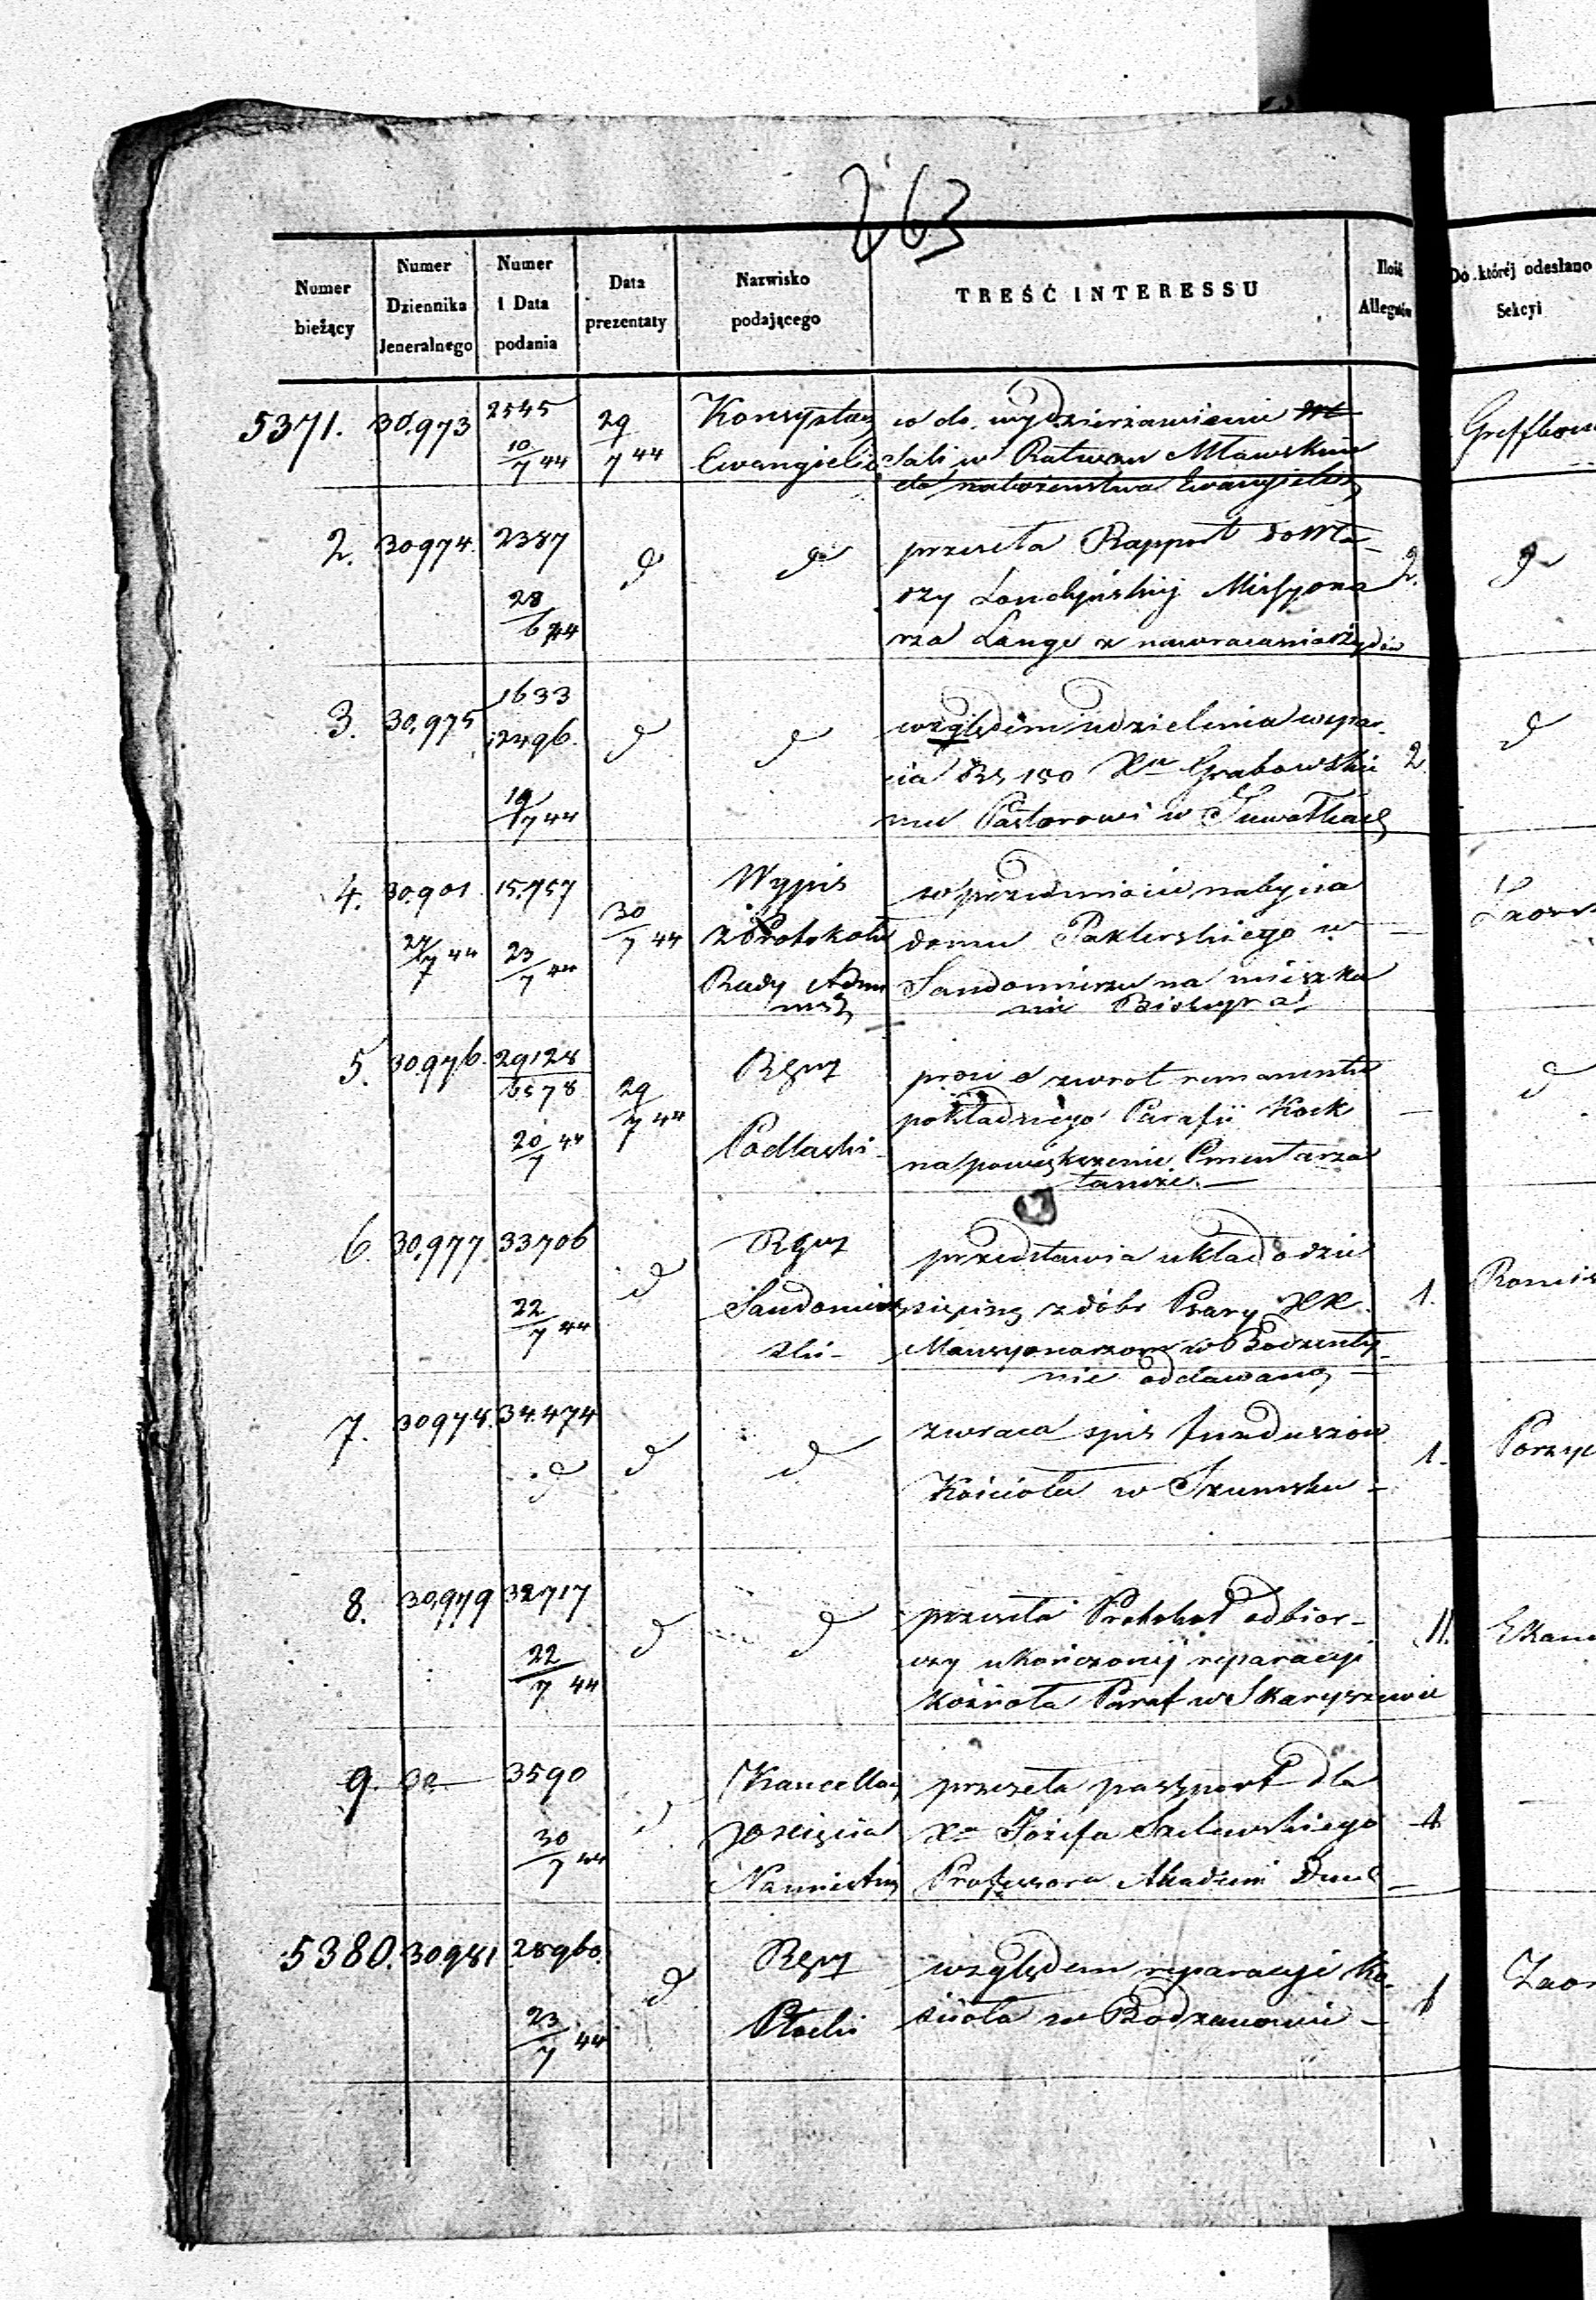 263
Numer bieżący
Numer Dziennika Jeneralnego
Numer i Data podania
Data prezentaty
Nazwisko podającego
TREŚĆ INTERESSU
Ilość Allegatów
Do któréj odesłano Sekcyi
5371. 30.973 2545 10/7 44 29/7 44 Konsystarz Ewangielic
co do wydzierżawienia
Sali w Ratuszu Mławskim
do nabożeństwa Ewangielic
2. 30974. 2387 28/6 44 d d
przesyła Rapport
Londyńskiej Missyona
rza Lange z nawracania Żydów
2. d
3. 30.975 1633 12496. 19/7 44 d d
względem udzielenia wspar
cia Rs 150 Xu Grabowskie
mu Pastorowi w Suwałkach
2 d
4. 30.901. 15.757 27/7 44 23/7 44 30/7 44 Wypis
z Protokołu
Rady Admi
w przedmiocie nabycia
domu w
Sandomierzu na mieszka
nie Biskupa
5. 30.976. 29128 6578 20/7 44 29/7 44 Rguz
Podlaski
prosi o zwrot remanentu
pokładnego Parafii Kock
na powiększenie Cmentarza
tamże. —
d
6 30.977 33706 22/7 44 d Rguz
Sandomier
ski
przedstawia układ o dzie
sięcinę z dóbr Psary XX.
Mansyonarzom w Bodzenty
nie oddawaną
1.
7. 30978. 34.474 d d d
zwraca spis funduszów
Kościoła w Szumsku —
1.
8. 30,979 32717 22/7 44 d d
przesyła Protokół odbior-
czy ukończonej reparacyi
kościoła Paraf w Skaryszewie
11.
9. 3590 30/7 44 d Kancellarya
Xięcia
Namiestnika
przesyła paszport dla
Xa Józefa
Professora Akademii Duch
1
5380. 30981 28960. 23/7 44 d Rguz
Płocki
względem reparacyi Ko
ścioła w Bodzanowie —
1